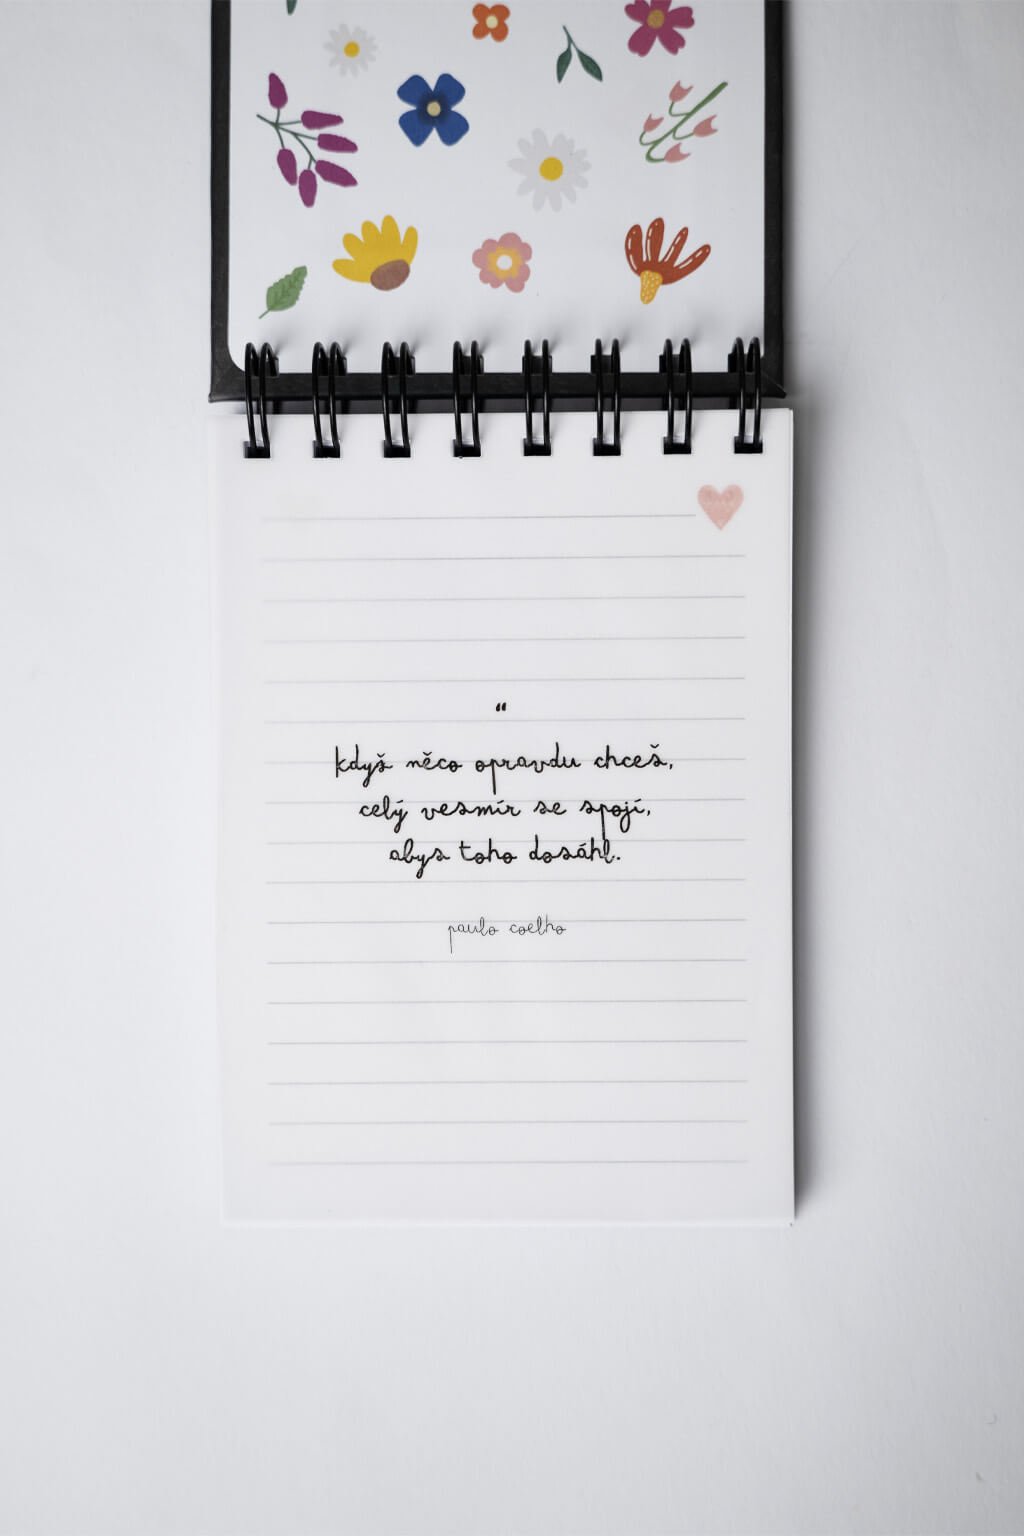 “
když něco opravdu chceš,
celý vesmír se spojí,
abys toho dosáhl.
paulo coelho